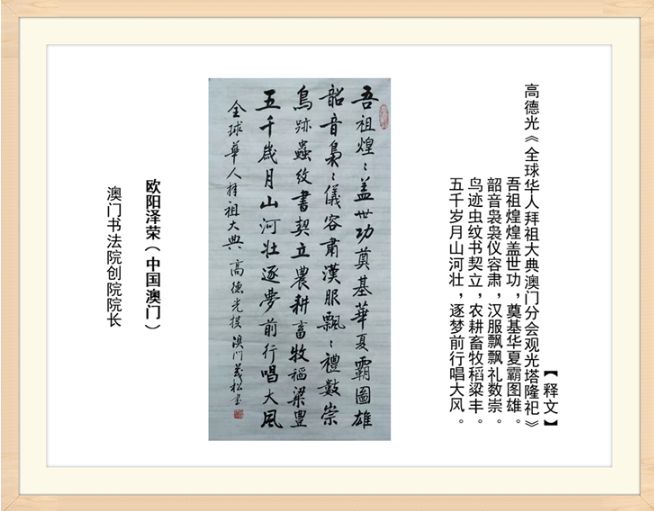 【释文】
高德光《全球华人拜祖大典澳门分会观光塔隆祀》
吾祖煌煌盖世功，奠基华夏霸图雄。
韶音袅袅仪容肃，汉服飘飘礼数崇。
鸟迹虫纹书契立，农耕畜牧稻粱丰。
五千岁月山河壮，逐梦前行唱大风。
吾祖煌〻盖世功奠基華夏霸圖雄
韶音裊〻儀容肅漢服飄〻禮數崇
鳥跡蟲紋書契立農耕畜牧稻粱豊
五千歲月山河壯逐夢前行唱大風
全球華人拜祖大典 高德光撰 澳門
欧阳泽荣（中国澳门）
澳门书法院创院院长